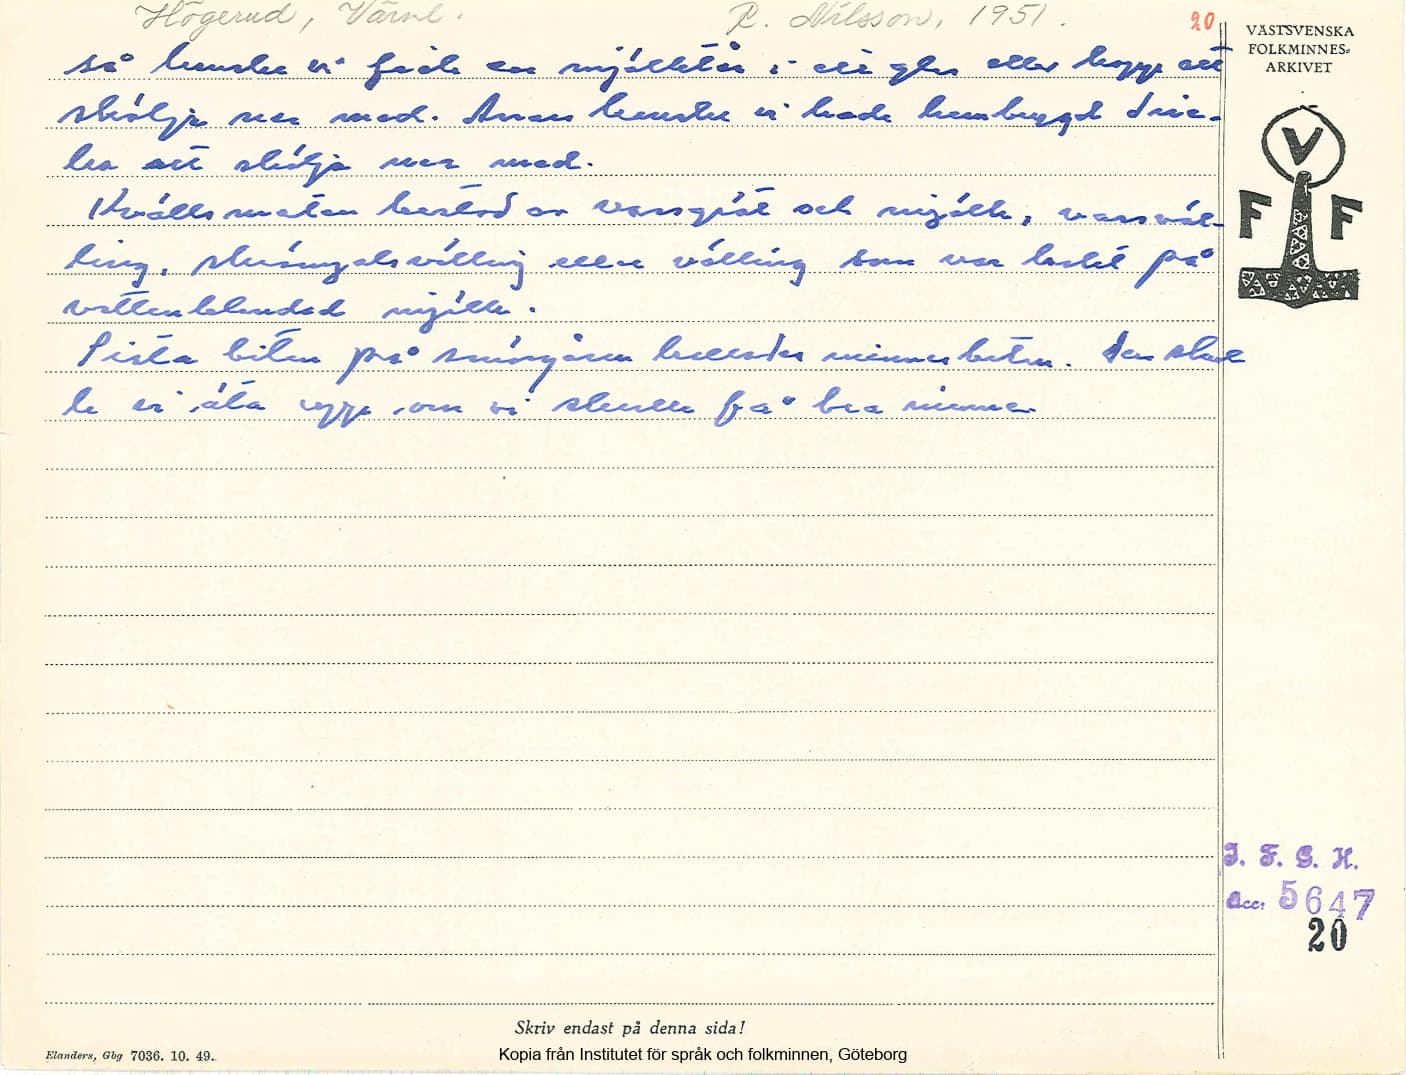 Högerud, Värml. R. Nilsson, 1951. 20
VÄSTSVENSKA
FOLKMINNES=
ARKIVET
V
F F
så kanske vi fick en mjölktår i ett glas eller kopp att
skölja ner med. Annars kanske vi hade hembryggt dric-
ka att skölja ner med.
Kvällsmaten bestod av vassgröt och mjölk, vassväl-
ling, skrångalsvälling eller välling som var kokt på
vattenblandad mjölk.
Sista biten på smörgåsen kallades minnesbiten. Den skul
le vi äta upp om vi skulle få bra minne.
I. F. G. H.
acc: 5647
20
Skriv endast på denna sida!
Elanders, Gbg 7036. 10. 49.
Kopia från Institutet för språk och folkminnen, Göteborg